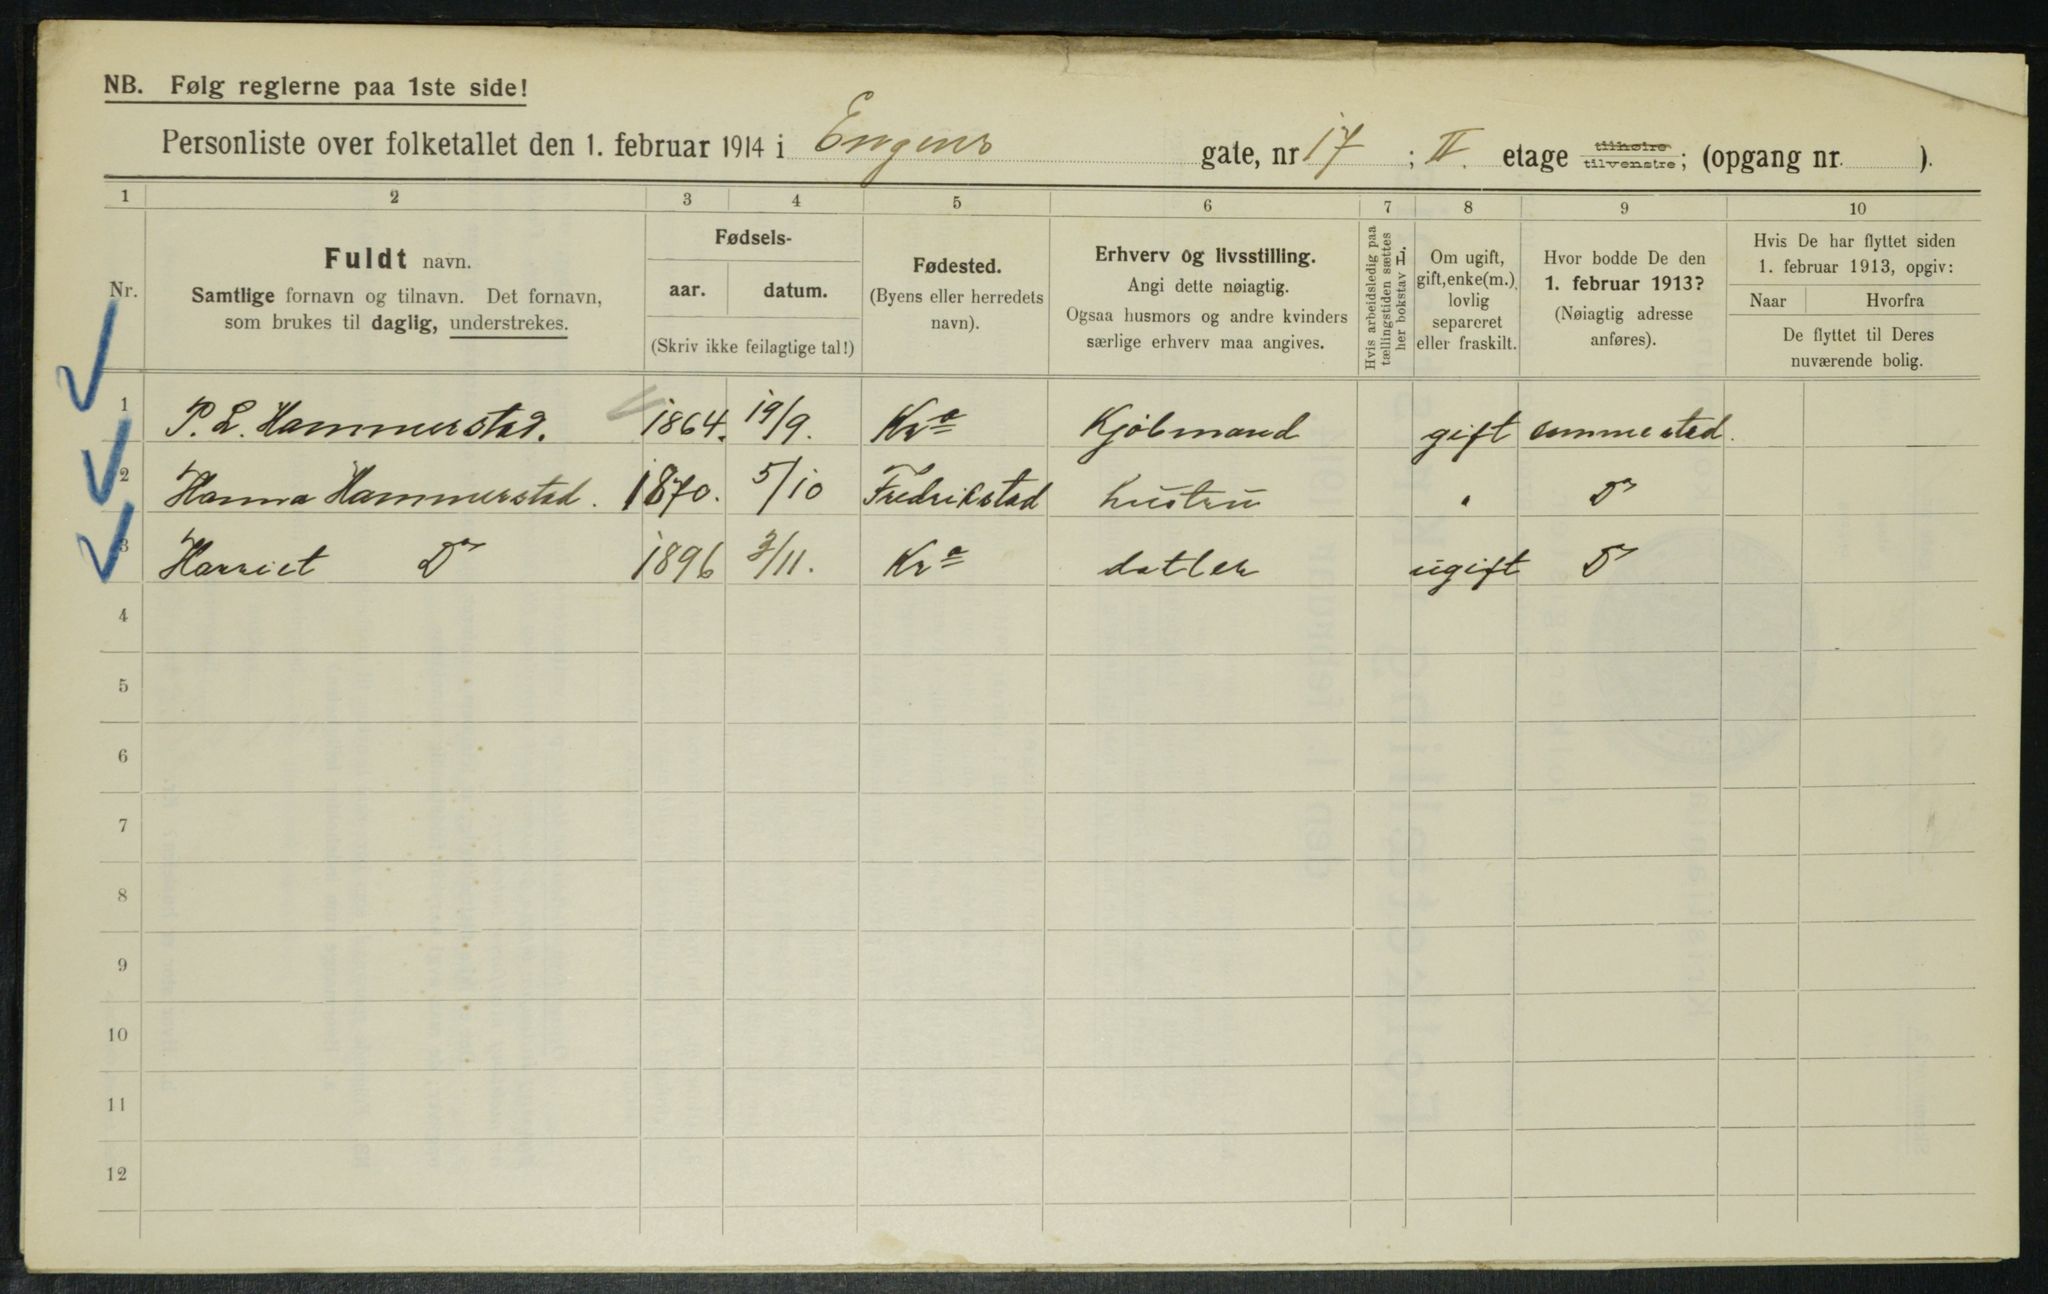 NB. Følg reglerne paa 1ste side!
Personliste over folketallet den 1. februar 1914 i Engens gate, nr 17 ; II. etage tilhøire tilvenstre; (opgang nr. ).
1 2 3 4 5 6 7 8 9 10
Nr.
Fuldt navn.
Samtlige fornavn og tilnavn. Det fornavn,
som brukes til daglig, understrekes.
Fødsels-
aar. datum.
(Skriv ikke feilagtige tal!)
Fødested.
(Byens eller herredets
navn).
Erhverv og livsstilling.
Angi dette nøiagtig.
Ogsaa husmors og andre kvinders
særlige erhverv maa angives.
Hvis arbeidsledig paa
tællingstiden sættes
her bokstav L.
Om ugift,
gift, enke(m.),
lovlig
separeret
eller fraskilt.
Hvor bodde De den
1. februar 1913?
(Nøiagtig adresse
anføres).
Hvis De har flyttet siden
1. februar 1913, opgiv:
Naar Hvorfra
De flyttet til Deres
nuværende bolig.
1 P. L. Hammerstad. 1864. 19/9. Kra Kjöbmand gift sammested.
2 Hanna Hammerstad. 1870. 5/10 Fredrikstad hustru " Do
3 Harriet Do 1896 3/11. Kra datter ugift Do
4
5
6
7
8
9
10
11
12